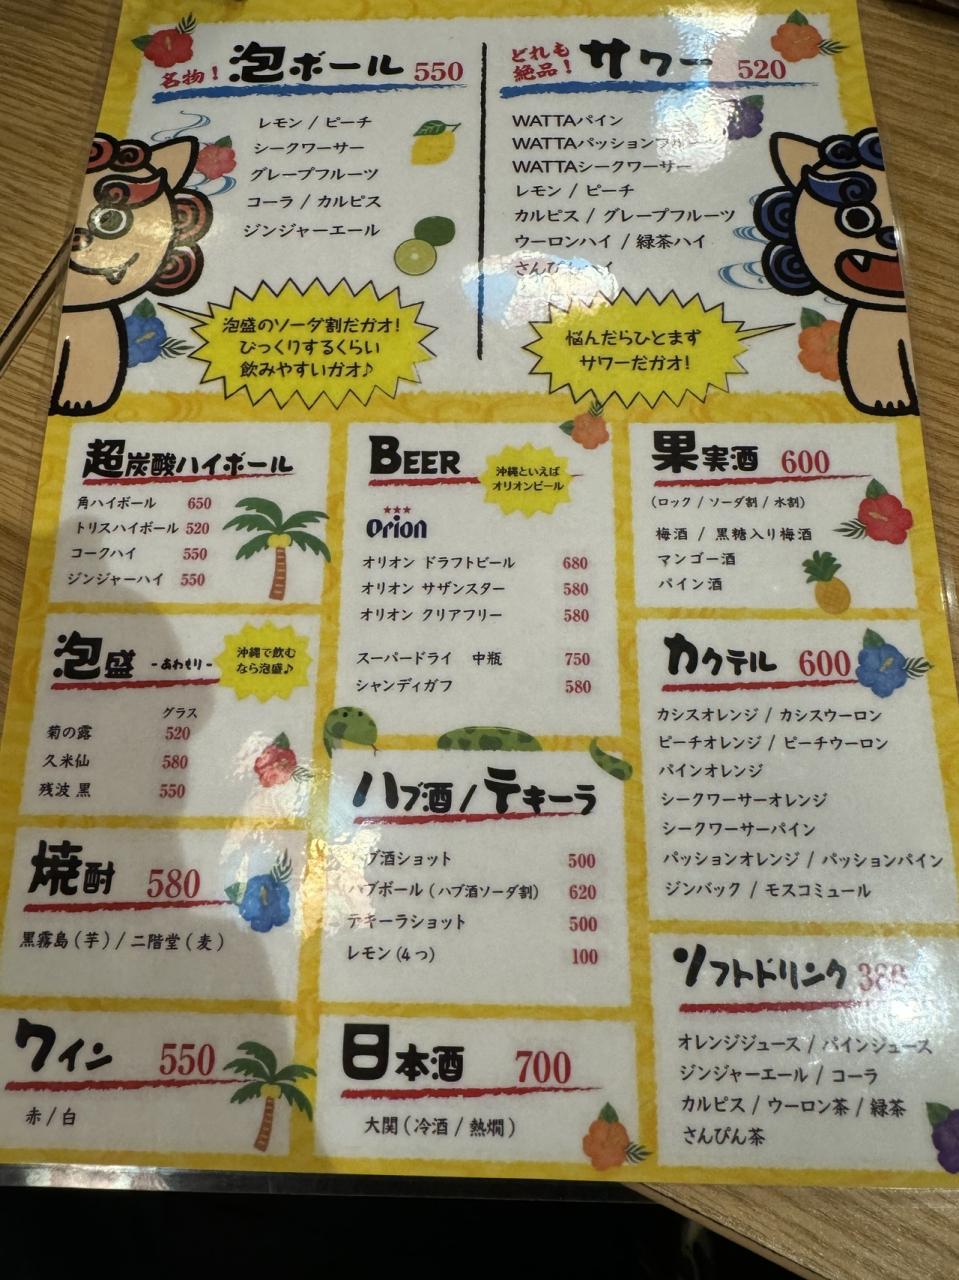 名物！
泡ボール 550
レモン / ピーチ
シークワーサー
グレープフルーツ
コーラ / カルピス
ジンジャーエール
泡盛のソーダ割だガオ！
びっくりするくらい
飲みやすいガオ♪
どれも
絶品！
サワー 520
WATTAパイン
WATTAパッションフルーツ
WATTAシークワーサー
レモン / ピーチ
カルピス / グレープフルーツ
ウーロンハイ / 緑茶ハイ
さんぴんハイ
悩んだらひとまず
サワーだガオ！
超炭酸ハイボール
角ハイボール 650
トリスハイボール 520
コークハイ 550
ジンジャーハイ 550
泡盛 -あわもり-
沖縄で飲む
なら泡盛♪
グラス
菊の露 520
久米仙 580
残波 黒 550
焼酎 580
黒霧島（芋）/ 二階堂（麦）
ワイン 550
赤 / 白
BEER
沖縄といえば
オリオンビール
Orion
オリオン ドラフトビール 680
オリオン サザンスター 580
オリオン クリアフリー 580
スーパードライ 中瓶 750
シャンディガフ 580
ハブ酒 / テキーラ
ハブ酒ショット 500
ハブボール（ハブ酒ソーダ割） 620
テキーラショット 500
レモン（4つ） 100
日本酒 700
大関（冷酒 / 熱燗）
果実酒 600
（ロック / ソーダ割 / 水割）
梅酒 / 黒糖入り梅酒
マンゴー酒
パイン酒
カクテル 600
カシスオレンジ / カシスウーロン
ピーチオレンジ / ピーチウーロン
パインオレンジ
シークワーサーオレンジ
シークワーサーパイン
パッションオレンジ / パッションパイン
ジンバック / モスコミュール
ソフトドリンク 380
オレンジジュース / パインジュース
ジンジャーエール / コーラ
カルピス / ウーロン茶 / 緑茶
さんぴん茶